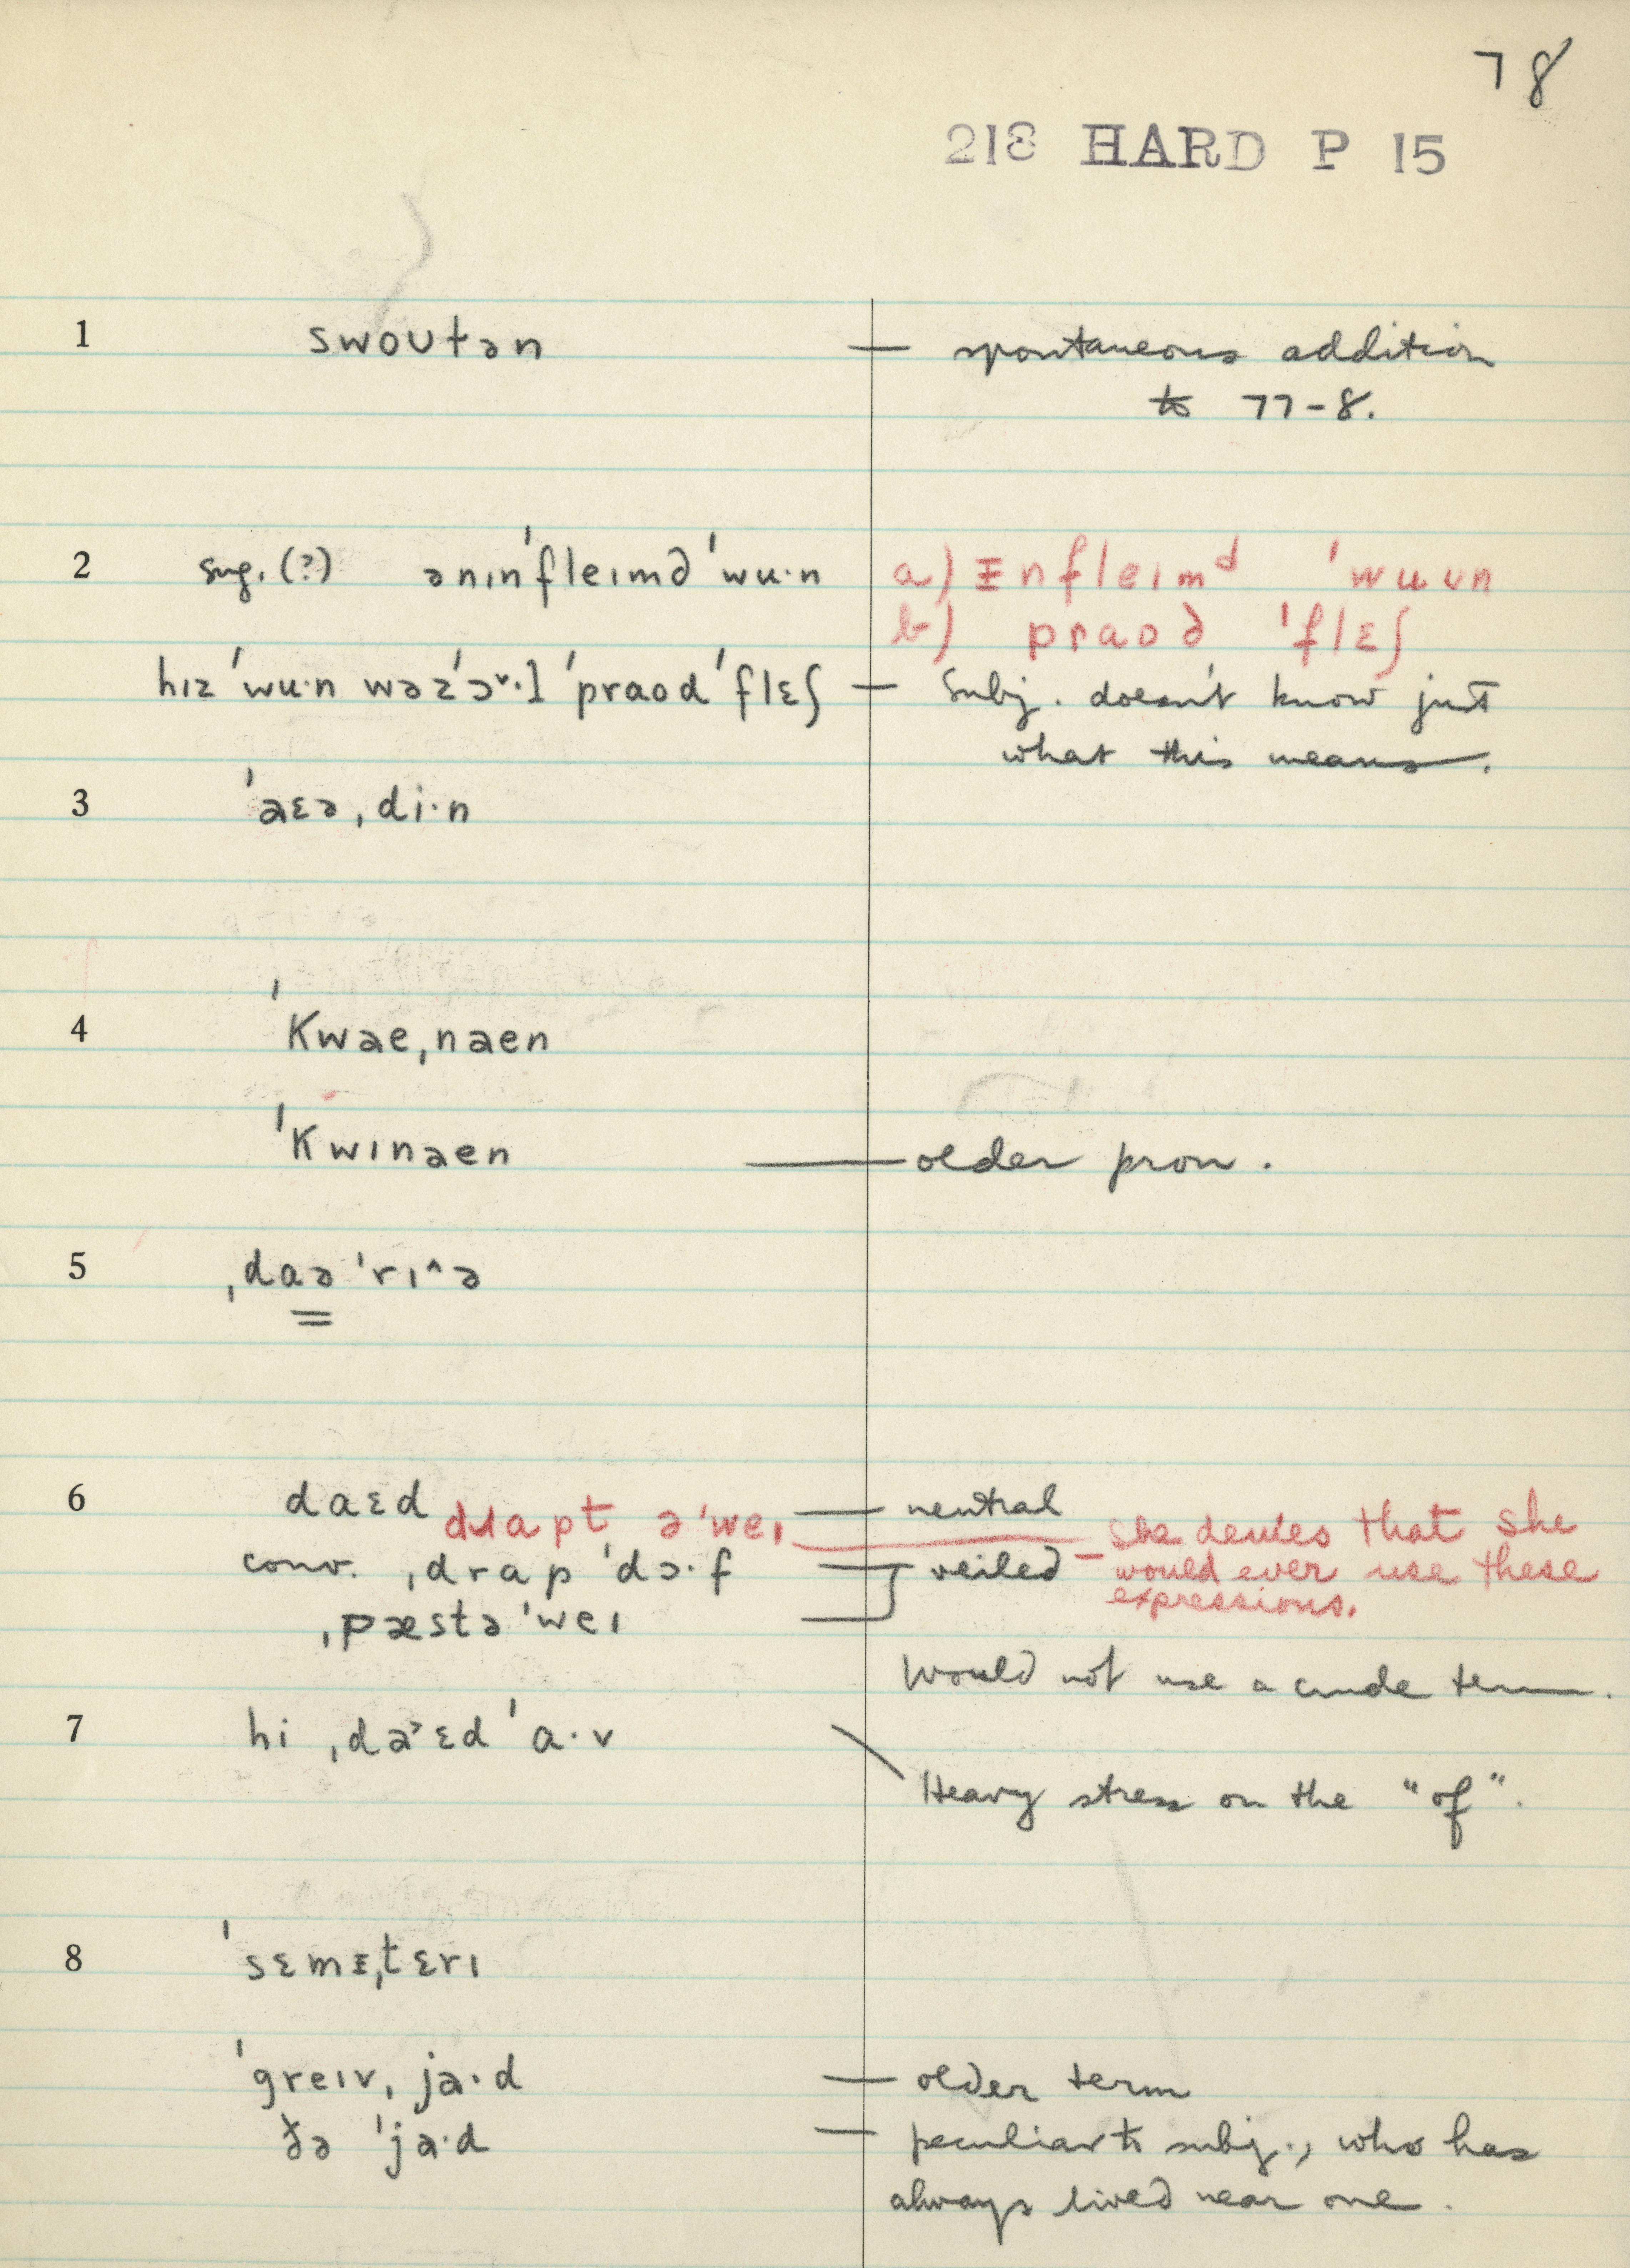 78
218 HARD P 15
1 swoʊtən — spontaneous addition
to 77-8.
2 sug. (?) ənɪnˈfleɪmd ˈwu·n a) ᵻnfleɪmᵈ ˈwuʊn
b) praod ˈflɛʃ
hɪz ˈwu·n wəzˈɔ˅·l ˈpraod ˈflɛʃ — Subj. doesn't know just
what this means.
3 ˈaɛəˌdi·n
4 ˈkwaeˌnaen
ˈkwɪnaen — older pron.
5 ˌdaəˈrɪ^ə
6 daɛd — neutral
drapt əˈweɪ — she denies that she
conv. ˌdrap ˈdɔ·f — veiled — would ever use these
expressions.
ˌpæstəˈweɪ
Would not use a crude term.
7 hi ˌda˃ɛd ˈɑ·v
Heavy stress on the "of".
8 ˈsɛmᵻˌtɛrɪ
ˈgreɪvˌja·d — older term
ðə ˈja·d — peculiar to subj., who has
always lived near one.